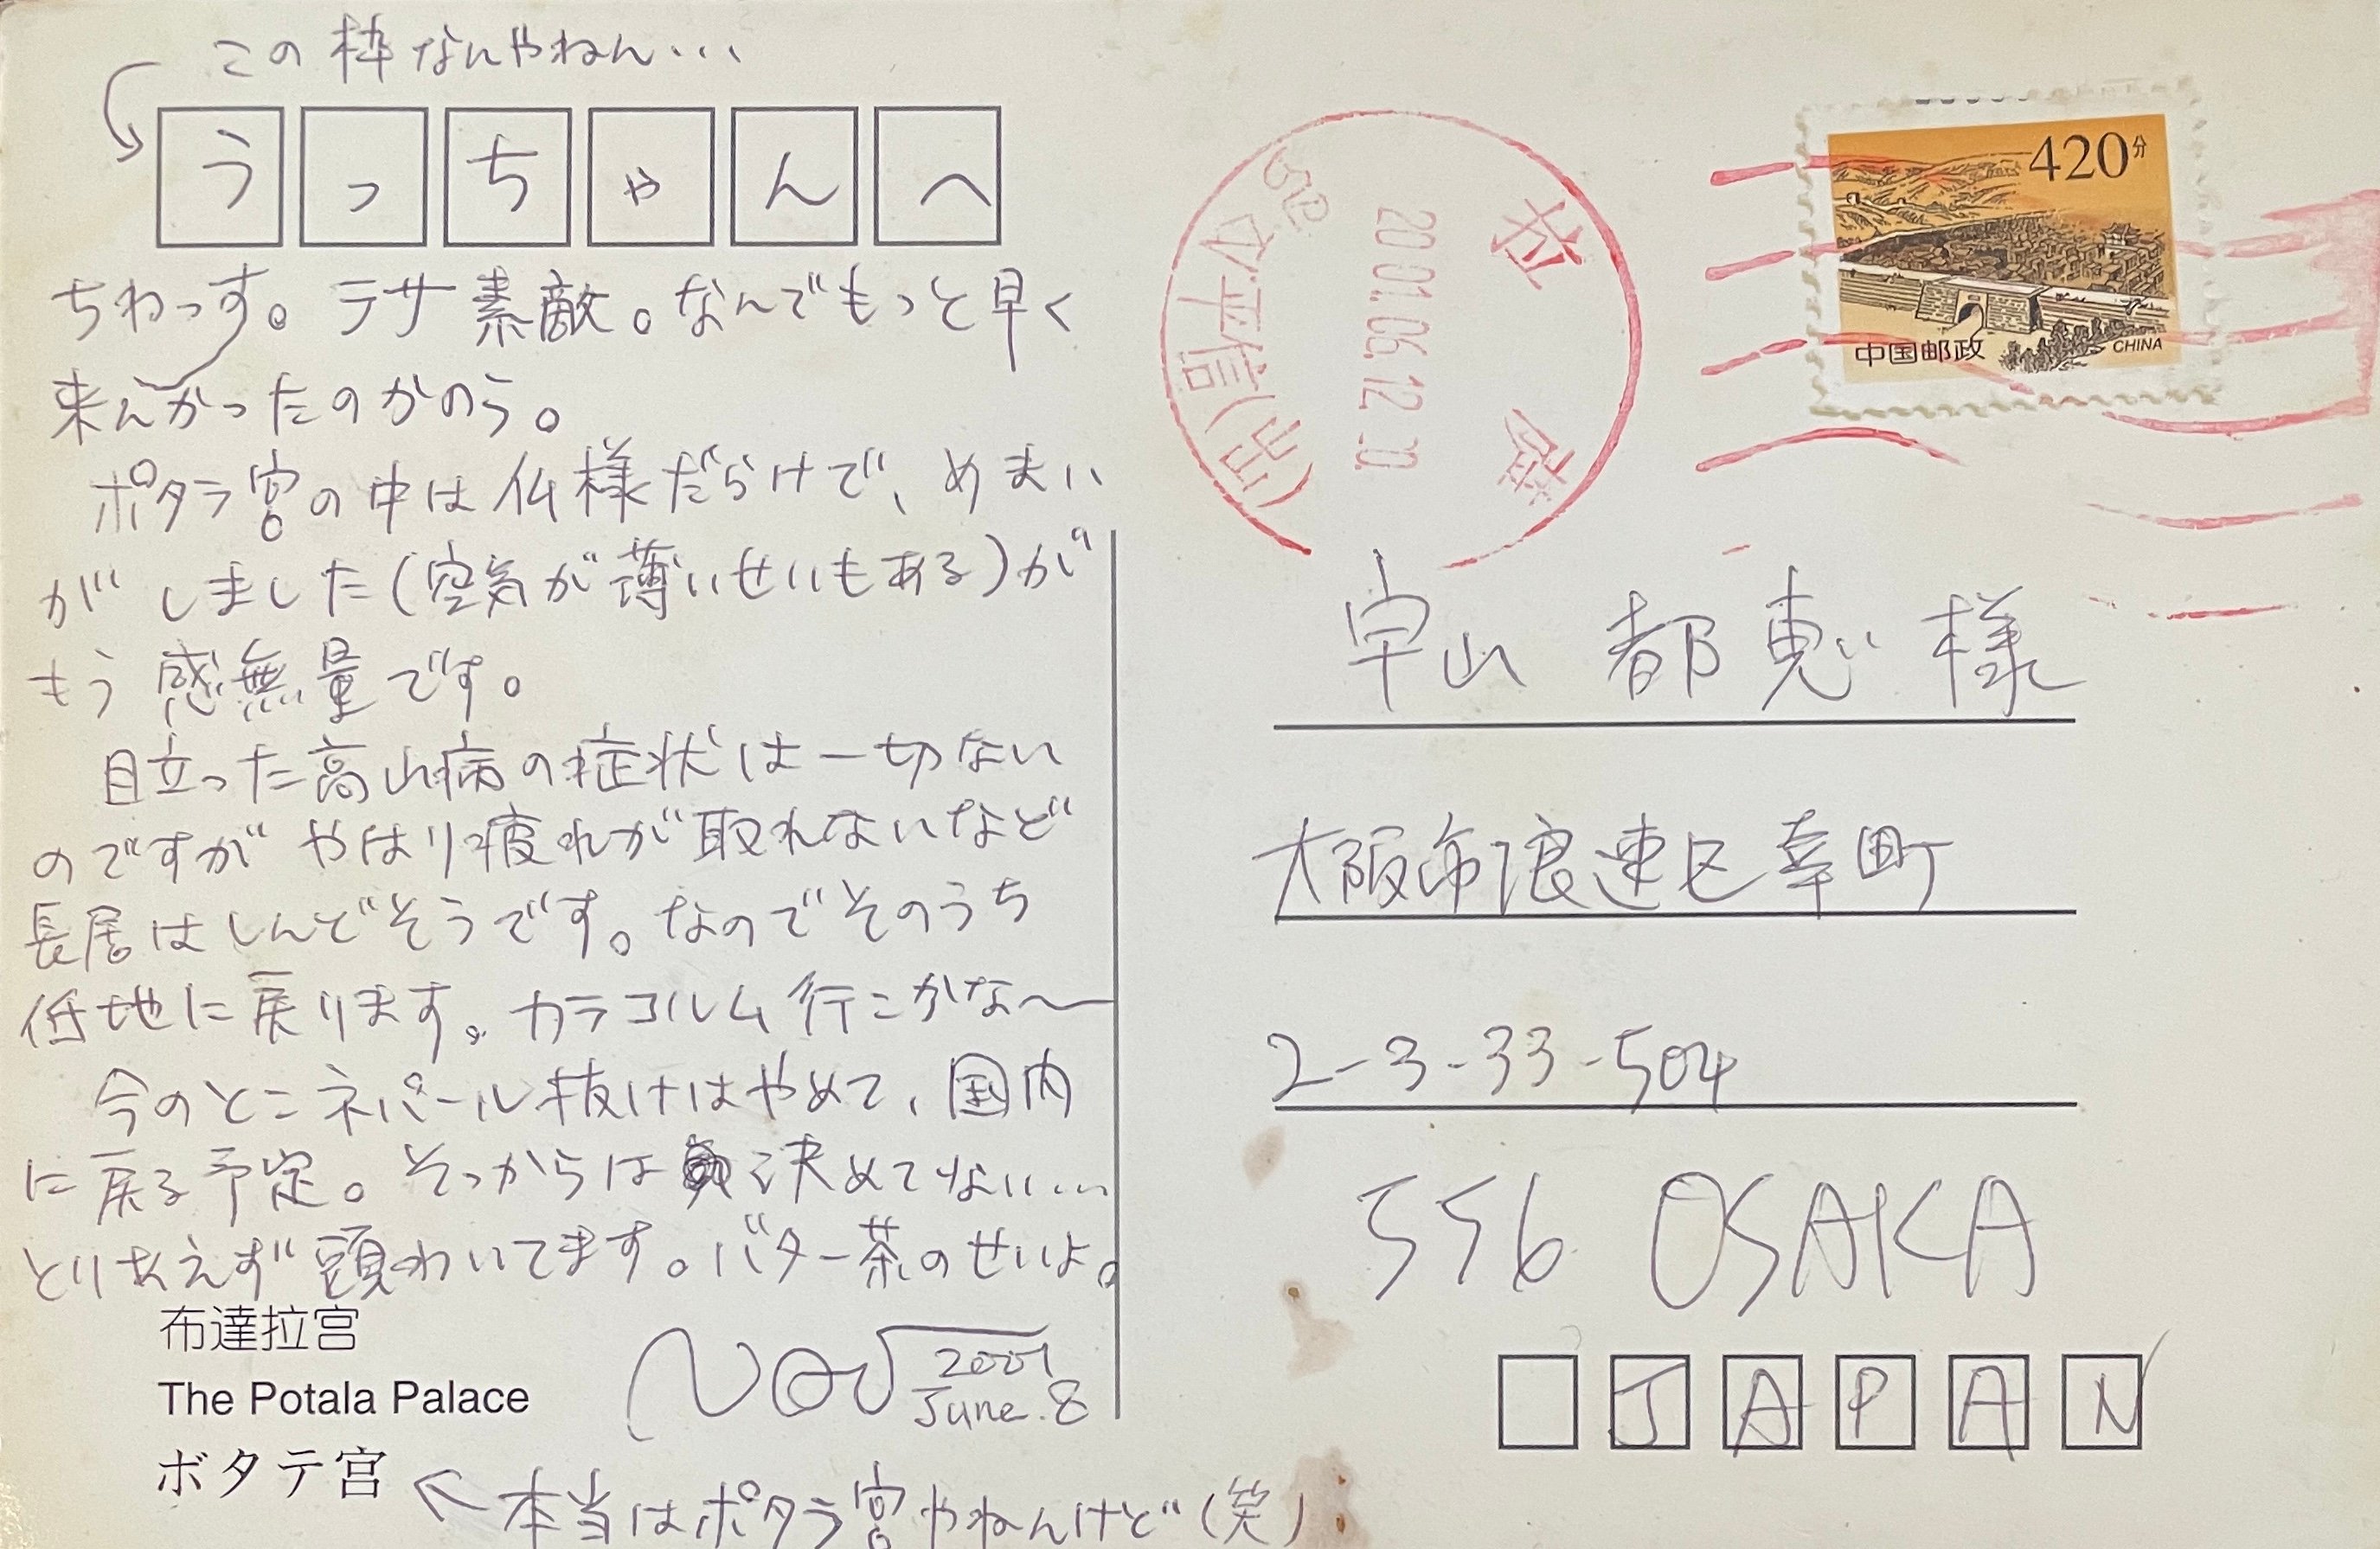 この枠なんやねん…
うっちゃんへ
ちわっす。ラサ素敵。なんでもっと早く
来んかったのかのう。
ポタラ宮の中は仏様だらけで、めまい
がしました(空気が薄いせいもある)が
もう感無量です。
目立った高山病の症状は一切ない
のですがやはり疲れが取れないなど
長居はしんどそうです。なのでそのうち
低地に戻ります。カラコルム行こかな〜
今のとこネパール抜けはやめて、国内
に戻る予定。そっからは決めてない…
とりあえず頭わいてます。バター茶のせいよ。
布達拉宮
The Potala Palace
ボタテ宮
2001
June.8
本当はポタラ宮やねんけど(笑)
拉
萨
2001.06.12
中国邮政
CHINA
420分
山都恵様
大阪市浪速区幸町
2-3-33-504
556 OSAKA
JAPAN